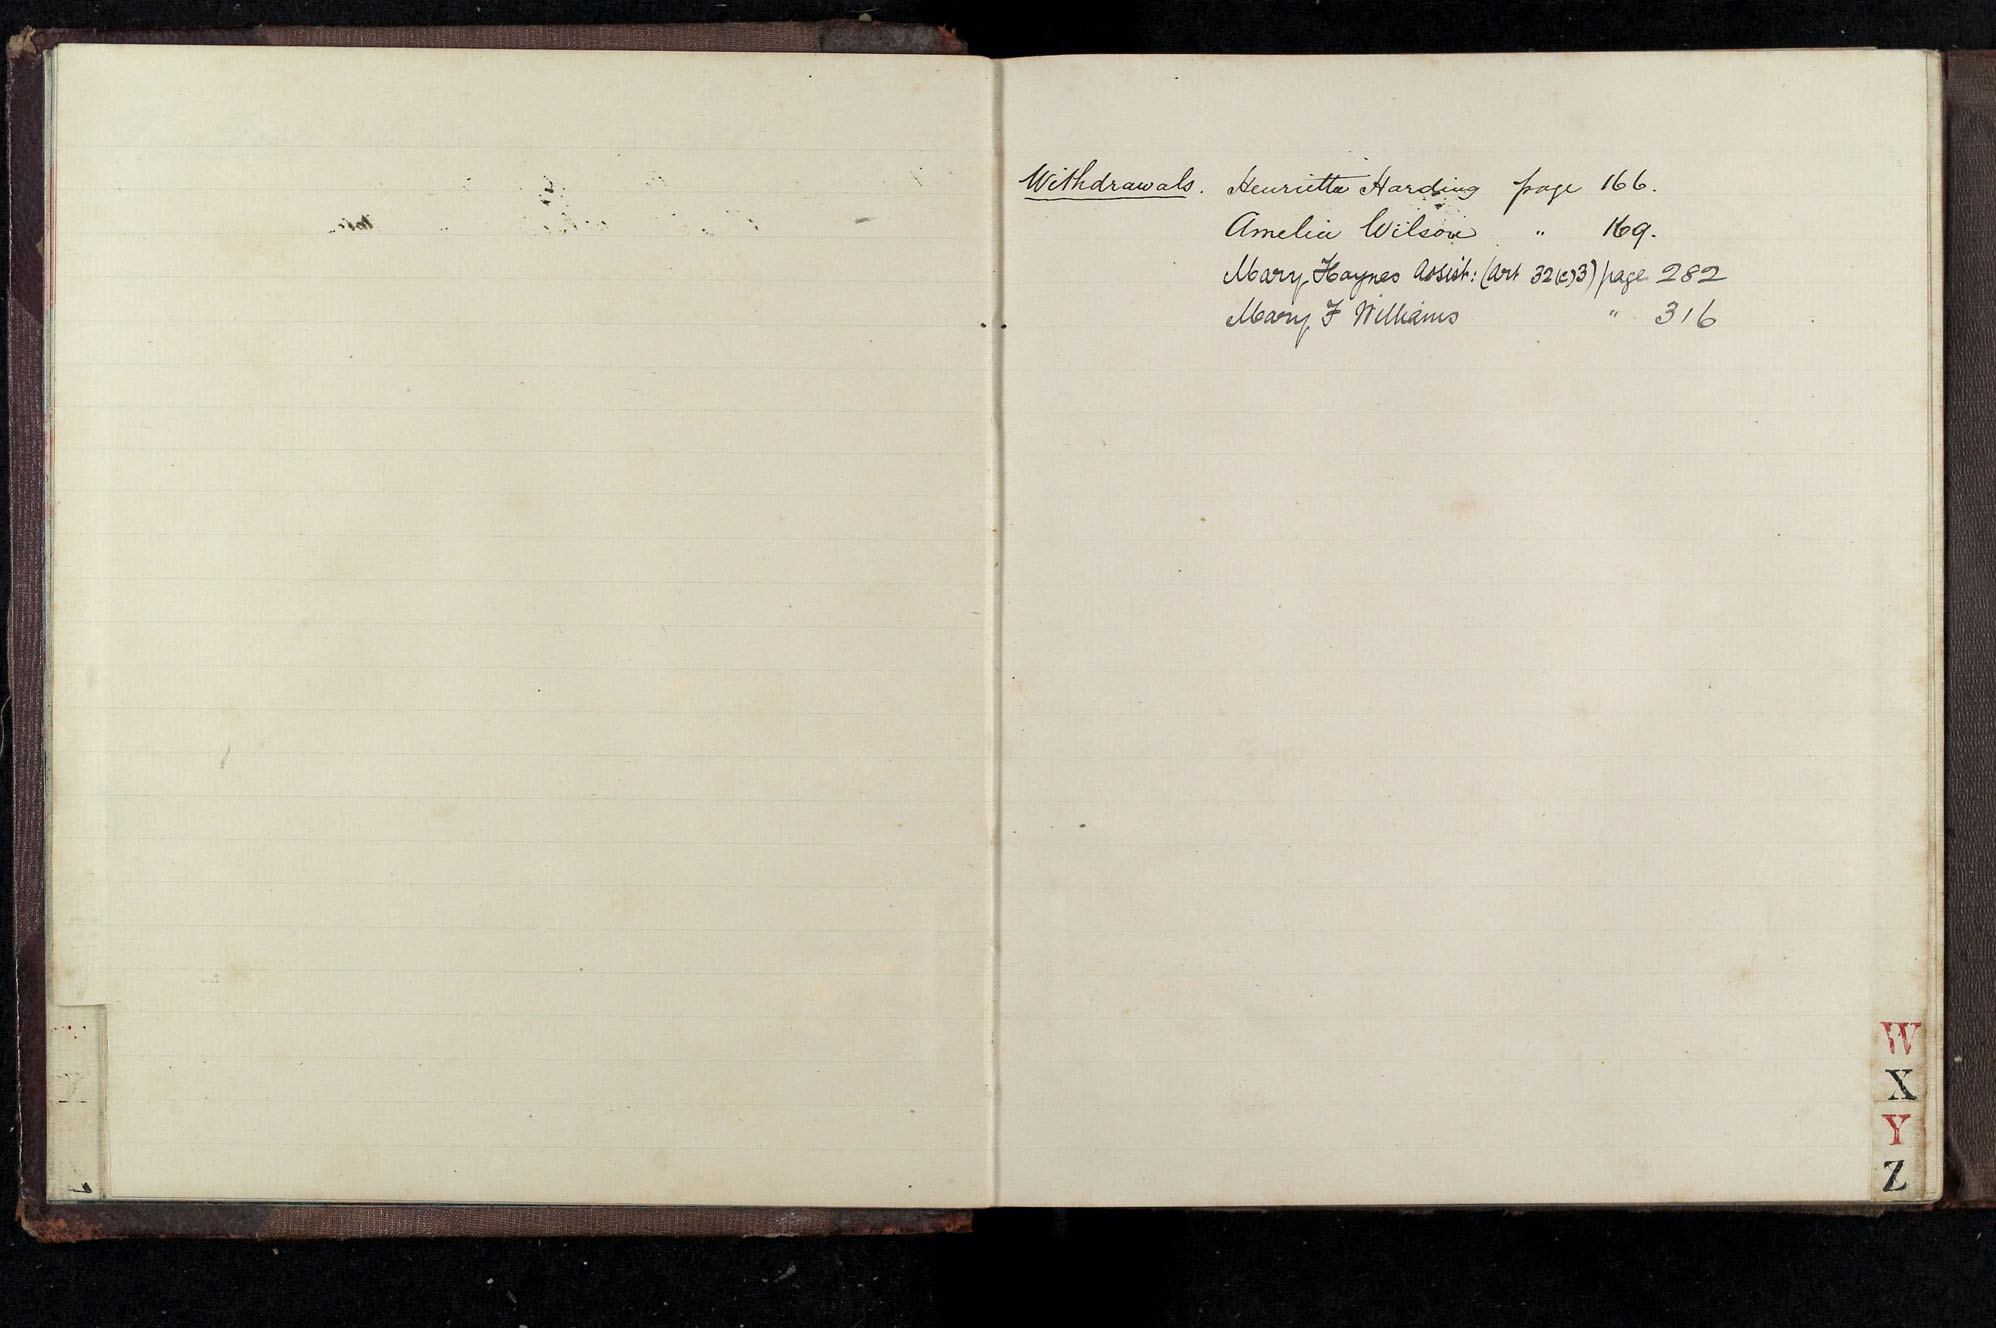 Withdrawals. Henrietta Harding page 166.
Amelia Wilson " 169.
Mary Haynes Assist: (Art 32(c)3) page 282
Mary F Williams " 316
W
X
Y
Z